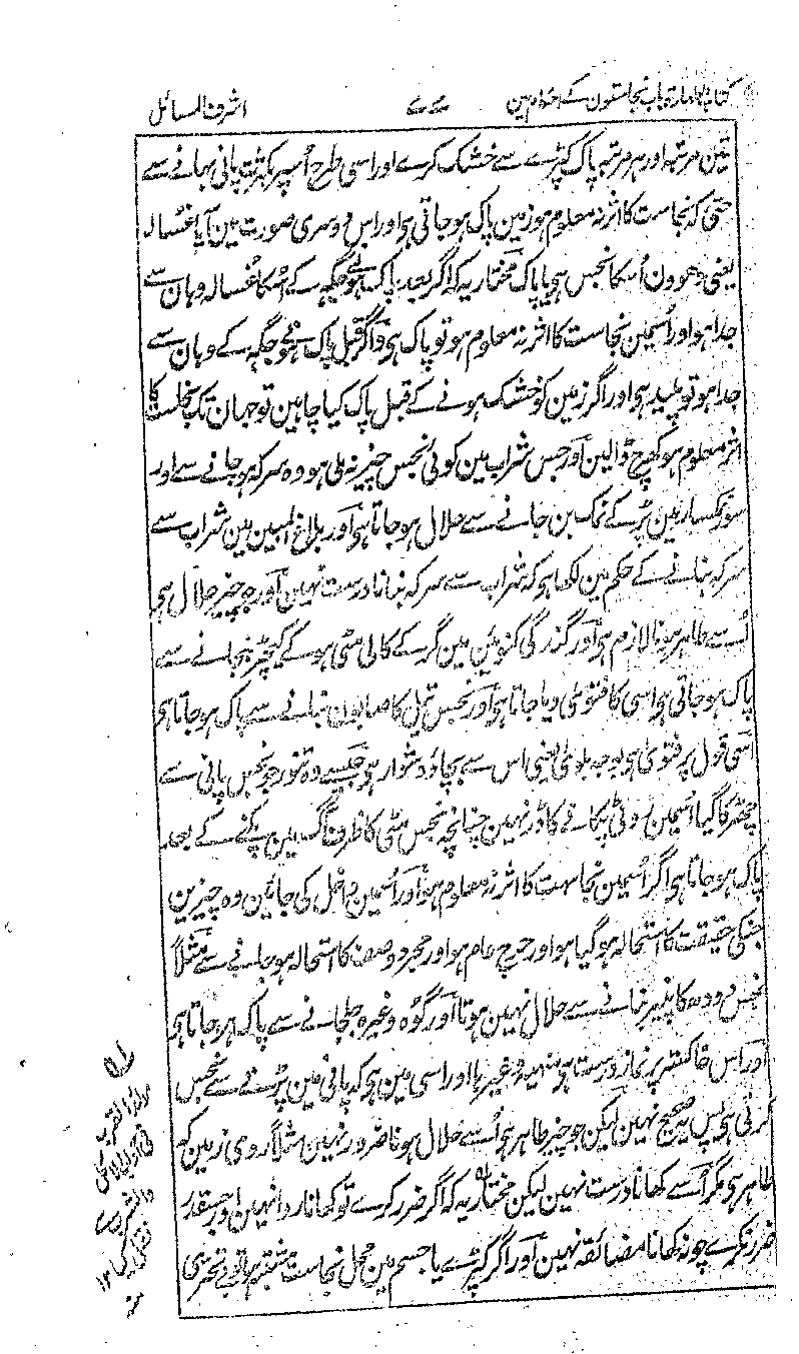 کتاب الطہارۃ باب نجاستون کے احکام مین ۷۷ اشرف المسائل
تین مرتبہ اور ہر مرتبہ پاک کپڑے سے خشک کرے اور اسی طرح اُسپر بکثرت پانی بہانے سے
حتی کہ نجاست کا اثر نہ معلوم ہو زمین پاک ہو جاتی ہی اور اس دوسری صورت مین آیا غسالہ
یعنی دھوون اُسکا نجس ہی یا پاک مختار یہ کہ اگر بعد پاک ہونے جگہ کے اُسکا غسالہ وہان سے
جدا ہو اور اُسمین نجاست کا اثر نہ معلوم ہو تو پاک ہی واگر قبل پاک ہونے جگہ کے وہان سے
جدا ہو تو پلید ہی اور اگر زمین کو خشک ہونے کے قبل پاک کیا چاہین تو جہان تک نجاست کا
اثر معلوم ہو کھرچ ڈالین اور جس شراب مین کوئی نجس چیز نہ ملی ہو وہ سرکہ ہو جانے سے اور
سور نمکسار مین پڑ کے نمک بن جانے سے حلال ہو جاتا ہی اور بلاغ المبین مین شراب سے
سرکہ بنانے کے حکم مین لکھا ہی کہ شراب سے سرکہ بنانا درست نہین اور جو چیز حلال ہی
اُسے طاہر ہونا لازم ہی اور گندگی کنوئین مین گر کے کالی مٹی ہو کے کیچڑ بنجانے سے
پاک ہو جاتی ہی اسی کا فتوی دیا جاتا ہی اور نجس تیل کا صابون بنانے سے پاک ہو جاتا ہی
اسی قول پر فتوی ہی بوجہ بلوی یعنی اس سے بچاؤ دشوار ہی جیسے وہ تنور جو نجس پانی سے
چھڑکا گیا اُسمین روٹی پکانے کا ڈر نہین چنانچہ نجس مٹی کا ظرف آگ مین پکنے کے بعد
پاک ہو جاتا ہی اگر اُسمین نجاست کا اثر نہ معلوم ہو اور اُسمین داخل کی جائین وہ چیزین
جنکی حقیقت کا استحالہ ہو گیا ہو اور حرج عام ہو اور مجرد وصف کا استحالہ ہو جانے سے مثلاً
نجس دودھ کا پنیر بنانے سے حلال نہین ہوتا اور گوہ وغیرہ جلجانے سے پاک ہو جاتا ہی
اور اس خاکستر پر نماز درست ہی منیہ وغیرہا اور اسی مین ہی کہ پانی مین پڑنے سے نجس
کرتی ہی پس یہ صحیح نہین لیکن جو چیز طاہر ہی اُسے حلال ہونا ضرور نہین مثلاً روی زمین کہ
طاہر ہی مگر اُسے کھانا درست نہین لیکن مختار یہ کہ اگر ضرر کرے تو کھانا روا نہین اور جسقدر
ضرر نکرے چونہ کھانا مضائقہ نہین اور اگر کپڑے یا جسم مین محل نجاست مشتبہ ہو تو بے تحری
نقل کیا ۱۲
منہ